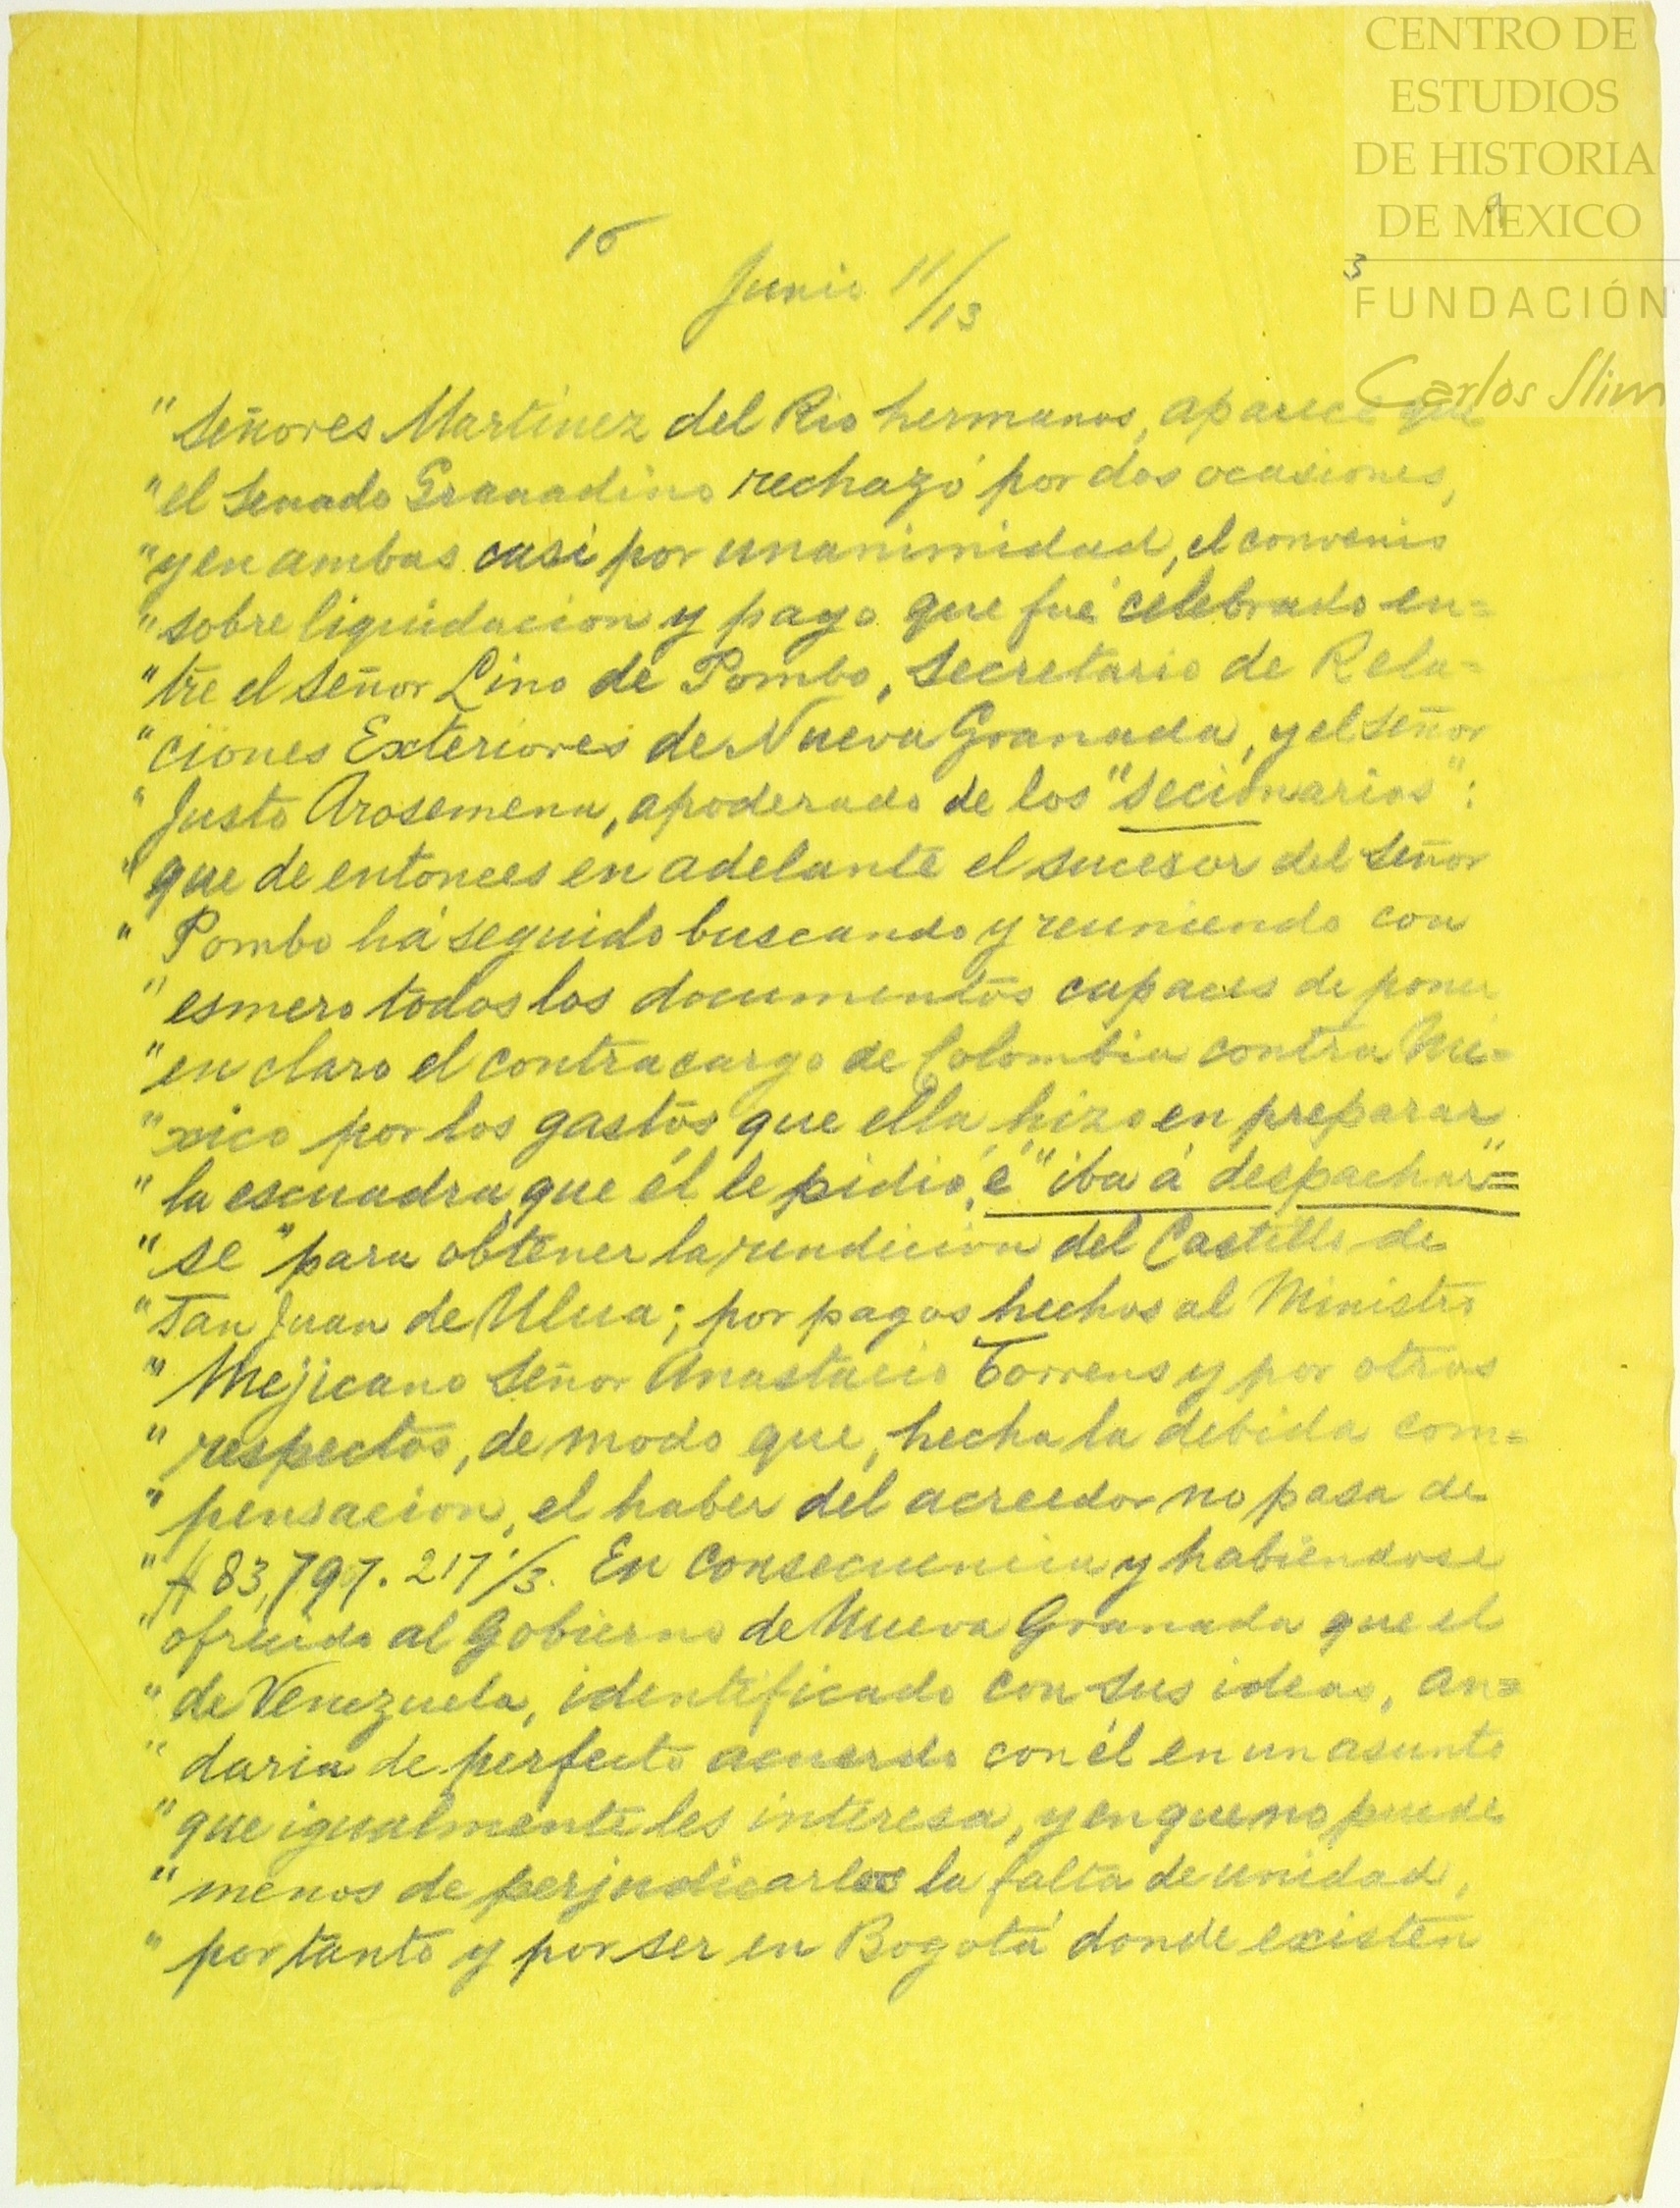 CENTRO DE
ESTUDIOS
DE HISTORIA
DE MEXICO
9
3
FUNDACIÓN
Carlos Slim
15
Junio 11/13
"Señores Martinez del Rio hermanos, aparece que
"el Senado Granadino rechazó por dos ocasiones,
"y en ambas casi por unanimidad, el convenio
"sobre liquidacion y pago que fué celebrado en=
"tre el señor Lino de Pombo, Secretario de Rela=
"ciones Exteriores de Nueva Granada, y el señor
"Justo Arosemena, apoderado de los "Secionarios":
"que de entonces en adelante el sucesor del señor
"Pombo há seguido buscando y reuniendo con
"esmero todos los documentos capaces de poner
"en claro el contracargo de Colombia contra Mé=
"xico por los gastos que ella hizo en preparar
"la escuadra que él le pidió, é "iba á despachar"=
"se" para obtener la rendicion del Castillo de
"San Juan de Ulua; por pagos hechos al Ministro
"Mejicano señor Anastacio Torrens y por otros
"respectos, de modo que, hecha la debida com=
"pensacion, el haber del acreedor no pasa de
"$ 83,797. 217 1/3. En consecuencia y habiendose
"ofrecido al Gobierno de Nueva Granada que el
"de Venezuela, identificado con sus ideas, an=
"daria de perfecto acuerdo con él en un asunto
"que igualmente les interesa, y en que no puede
"menos de perjudicarles la falta de unidad,
"por tanto y por ser en Bogotá donde existen